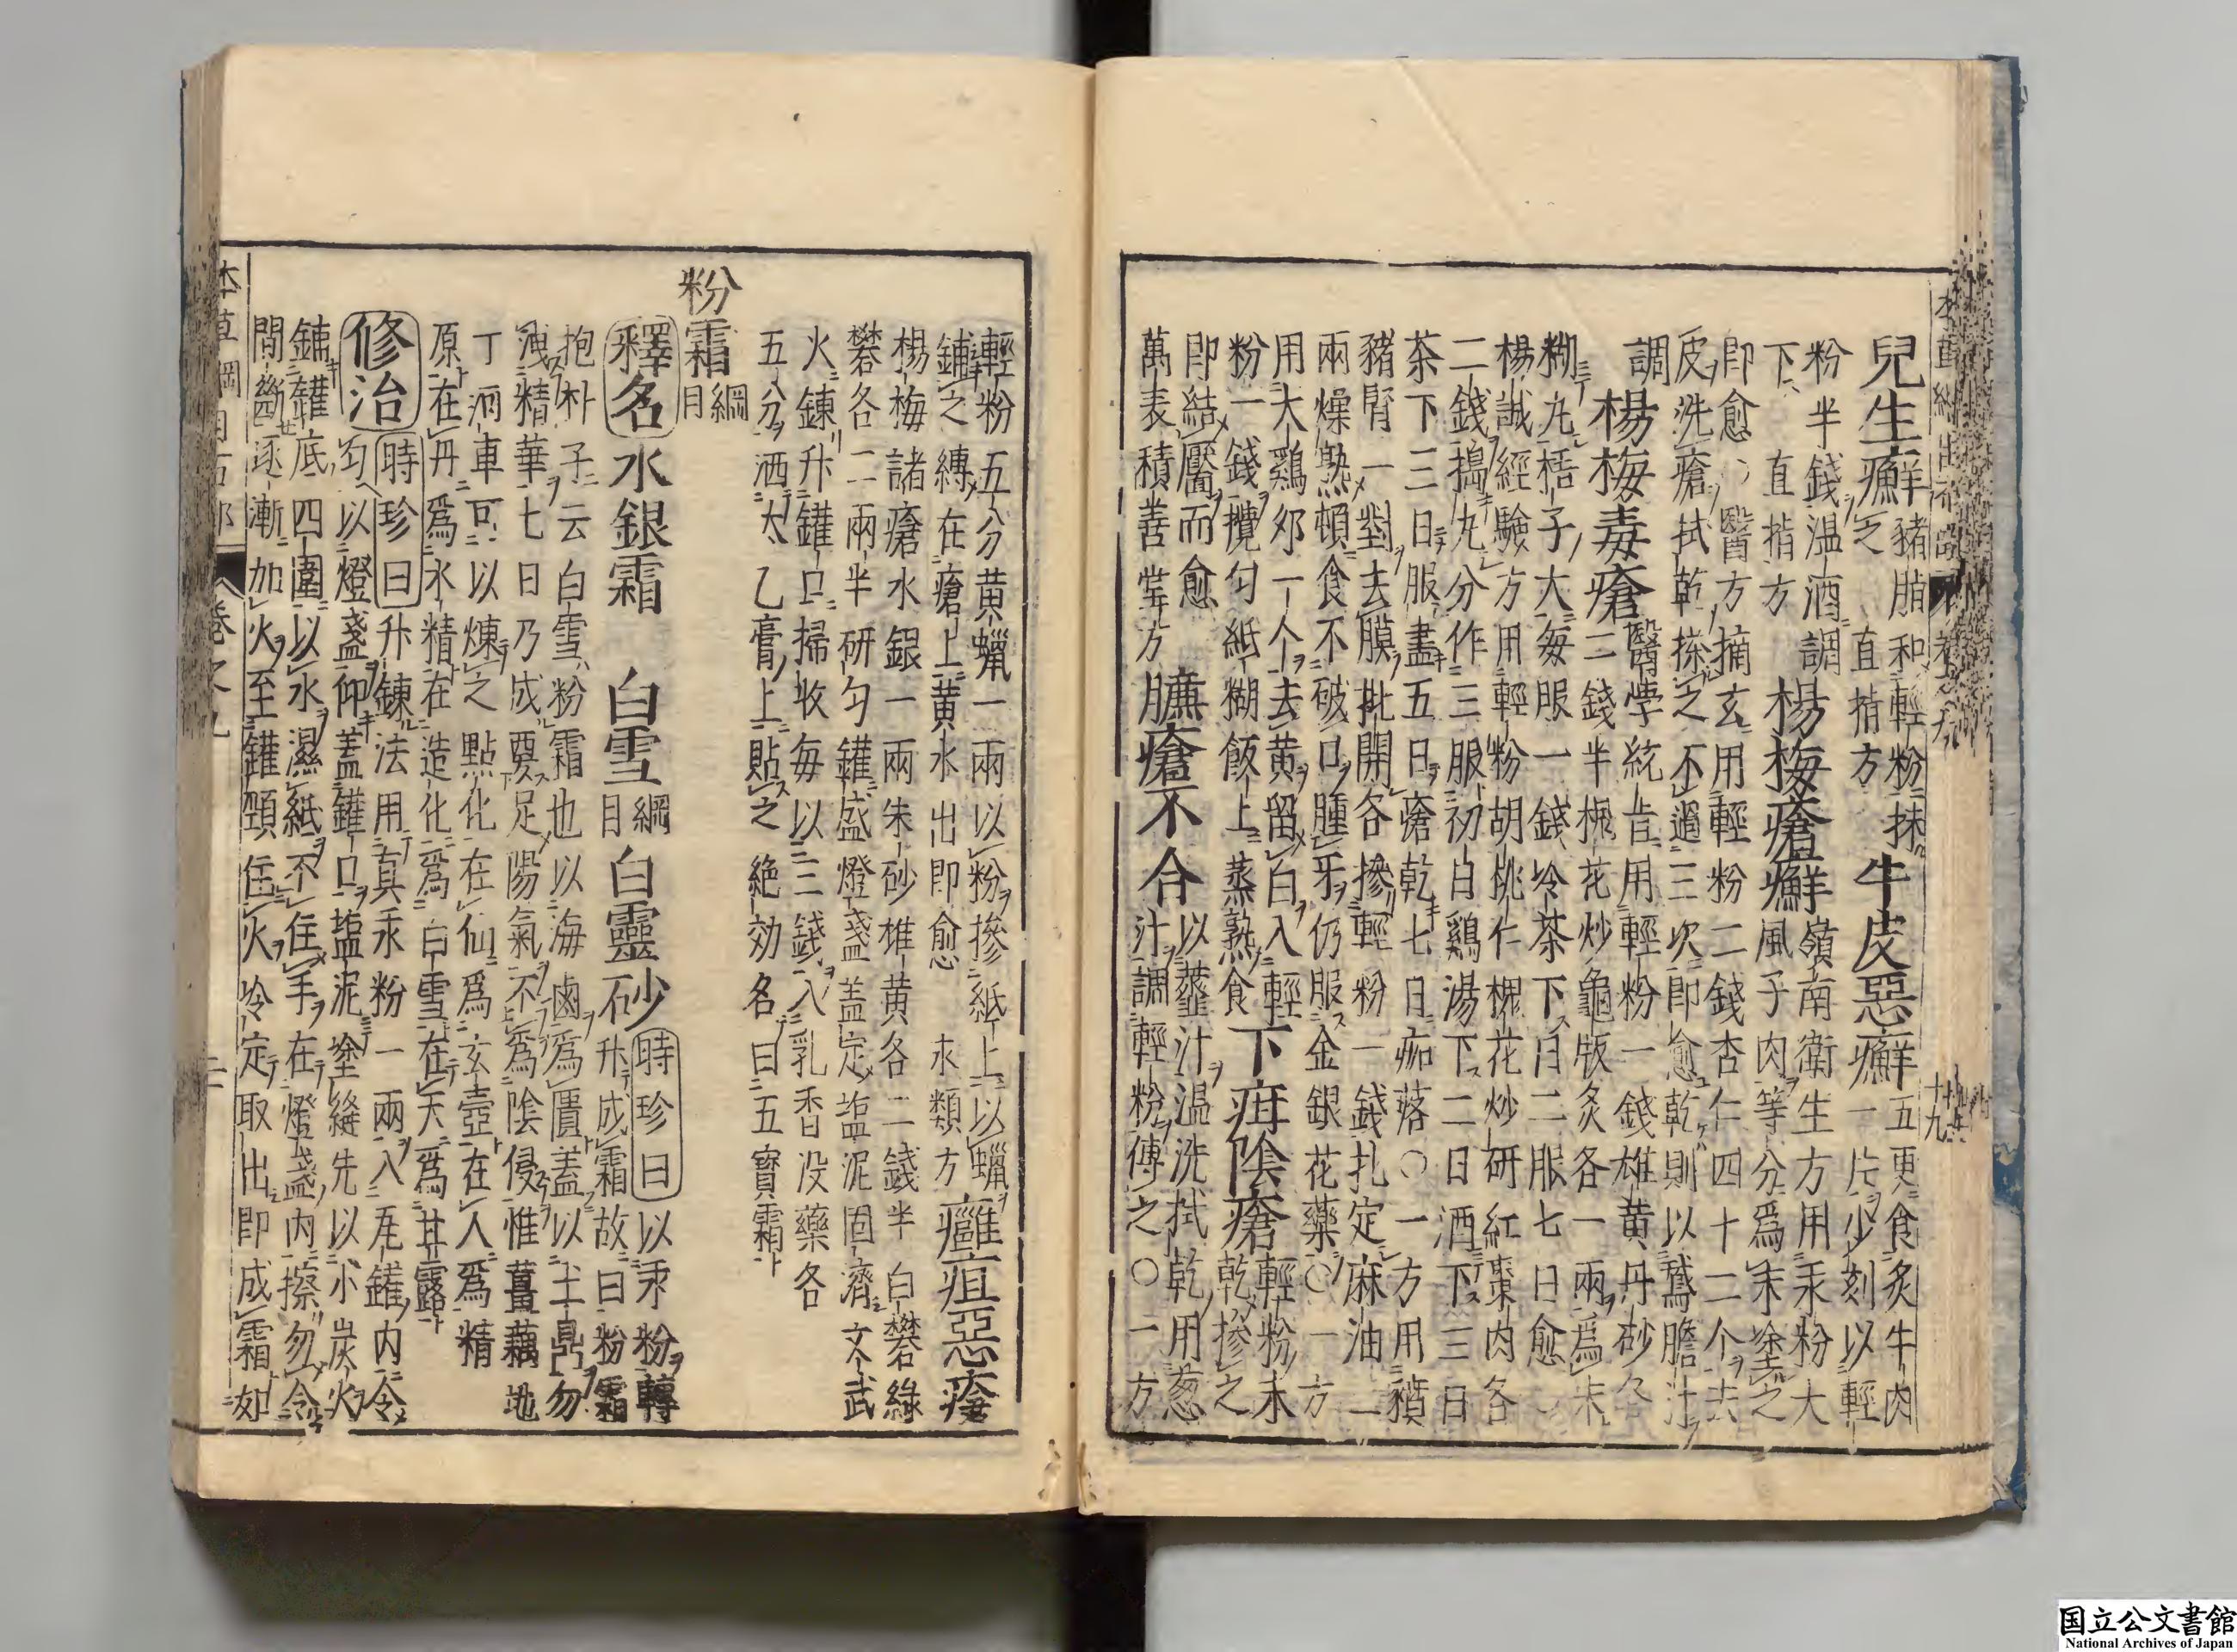 兒生癬豬脂和輕粉抹牛皮惡癬五更食炙牛肉
之直指方一片少刻以輕
粉半錢温酒調楊梅瘡癬嶺南衛生方用汞粉大
下直指方風子肉等分爲末塗之
即愈○醫方摘玄用輕粉二錢杏仁四十二个去
皮洗瘡拭乾搽之不過三次即愈乾則以鵞膽汁
調楊梅毒瘡醫學統旨用輕粉一錢雄黄丹砂各
二錢半槐花炒龜版炙各一兩爲末
糊丸梧子大每服一錢冷茶下日二服七日愈
楊誠經驗方用輕粉胡桃仁槐花炒研紅棗肉各
二錢搗丸分作三服初日鷄湯下二日酒下三日
茶下三日服盡五日瘡乾七日痂落○一方用豶
豬腎一對去膜批開各摻輕粉一錢扎定麻油二
兩煠熟頓食不破口腫牙仍服金銀花藥○一方
用大鷄夘一个去黄留白入輕下疳陰瘡輕粉末
粉一錢攪匀紙糊飯上蒸熟食乾摻之
即結靨而愈以虀汁温洗拭乾用葱
萬表積善堂方臁瘡不合汁調輕粉傅之○一方
輕粉五分黄蠟一兩以粉摻紙上以蠟
鋪之縛在瘡上黄水出即愈永類方癰疽惡瘡
楊梅諸瘡水銀一兩朱砂雄黄各二錢半白礬綠
礬各二兩半研匀鑵盛燈盞盖定塩泥固濟文武
火錬升鑵口掃收每以三錢入乳香没藥各
五分洒太乙膏上貼之絶効名曰五寳霜
粉霜綱目
釋名水銀霜白雪綱目白靈砂時珍曰以汞粉轉
升成霜故曰粉霜
抱朴子云白雪粉霜也以海鹵爲匱盖以土鼎勿
洩精華七日乃成要足陽氣不爲陰侵惟薑藕地
丁河車可以煉之點化在仙爲玄壺在人爲精
原在丹爲木精在造化爲白雪在天爲甘露
修治時珍曰升錬法用真汞粉一兩入瓦鑵内令
匀以燈盞仰盖鑵口塩泥塗縫先以小炭火
鋪鑵底四圍以水濕紙不住手在燈盞内擦勿令
間斷逐漸加火至鑵頸住火冷定取出即成霜如
本草綱目石部
卷之九
国立公文書館
National Archives of Japan